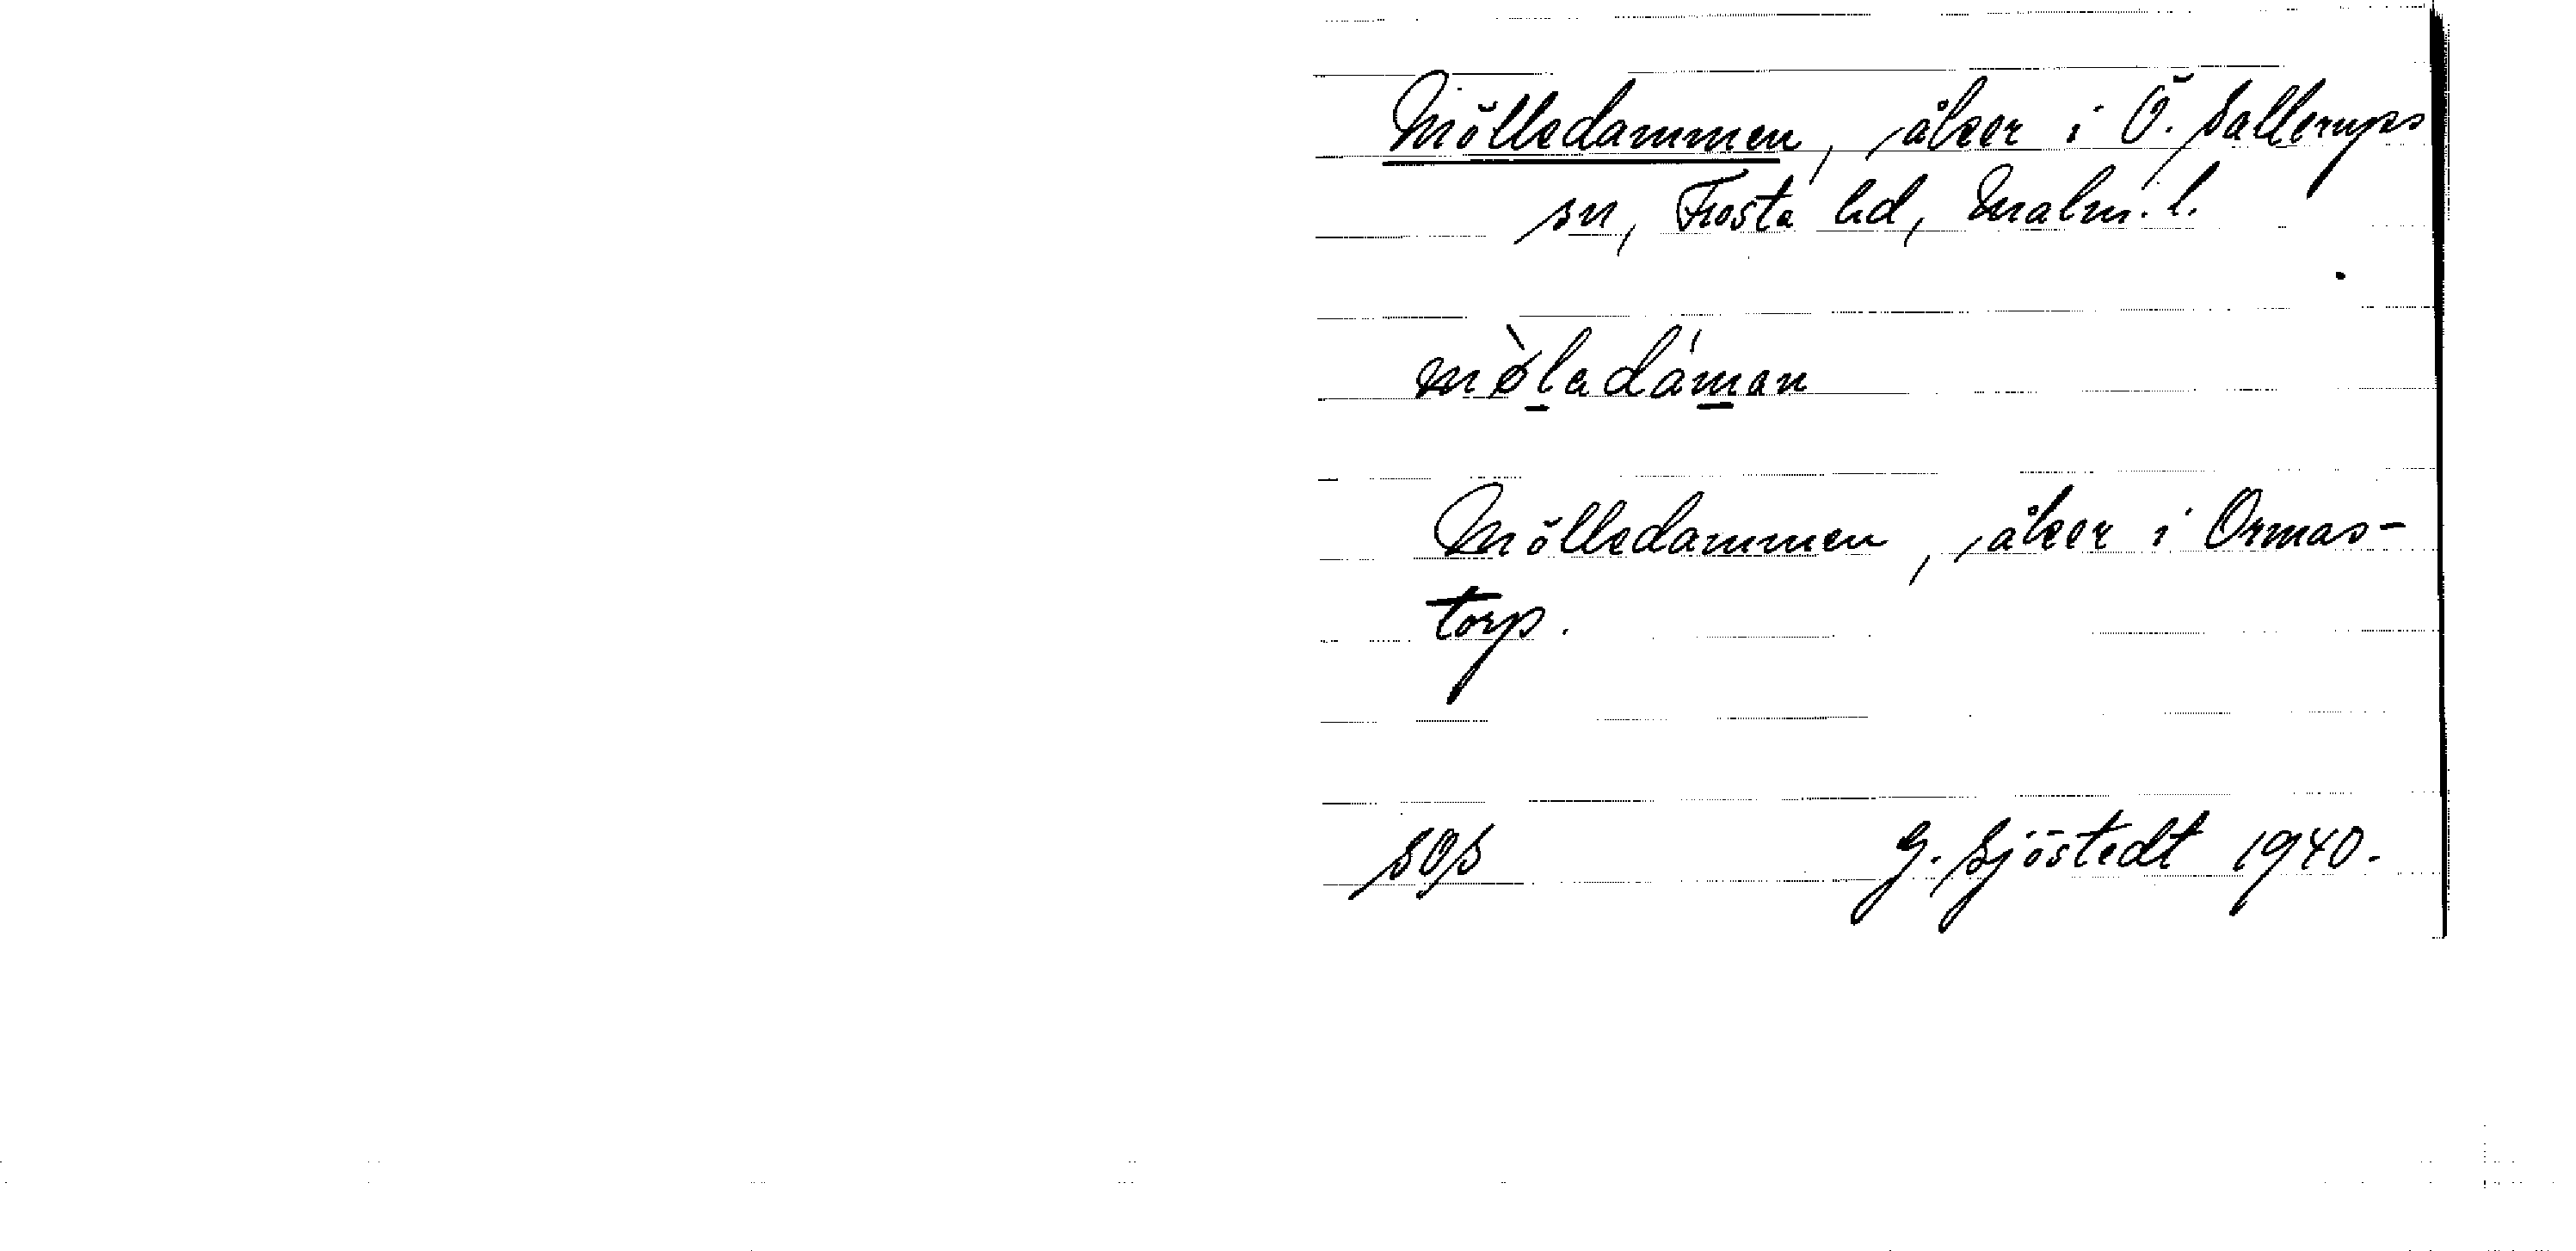 Mölledammen, åker i Ö. Sallerups
sn, Frosta hd, Malm. l.
mø̀ladáman
Mölledammen, åker i Ormas-
torp.
SOS G. Sjöstedt 1940.